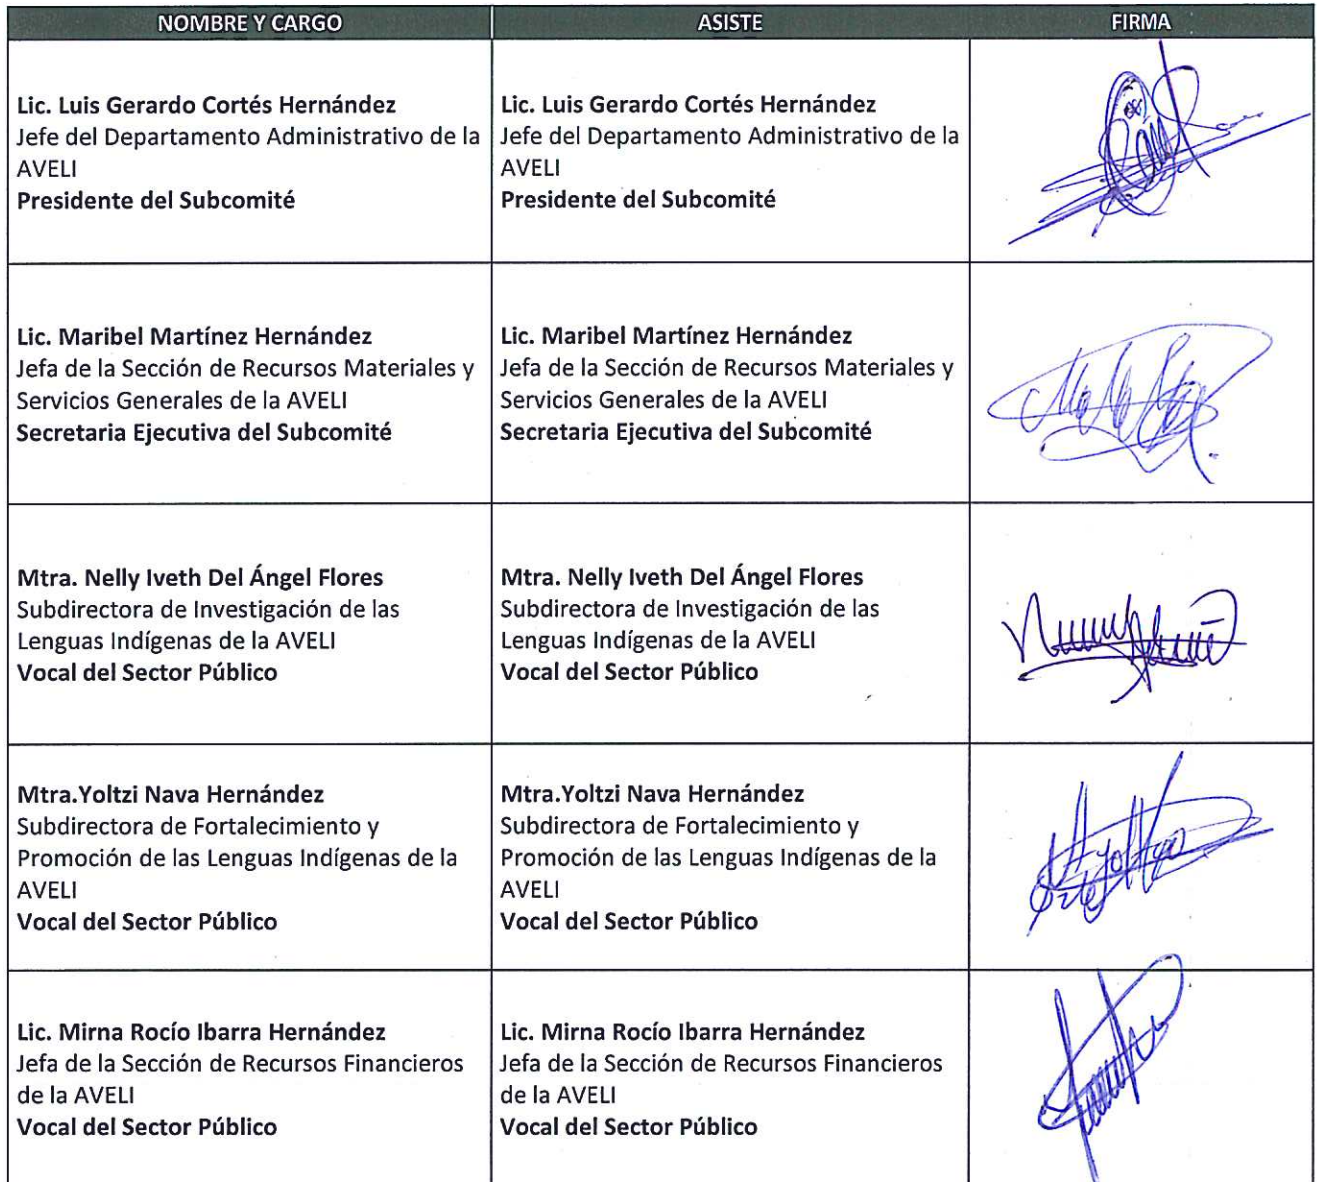 NOMBRE Y CARGO ASISTE FIRMA
Lic. Luis Gerardo Cortés Hernández
Jefe del Departamento Administrativo de la
AVELI
Presidente del Subcomité
Lic. Luis Gerardo Cortés Hernández
Jefe del Departamento Administrativo de la
AVELI
Presidente del Subcomité
Lic. Maribel Martínez Hernández
Jefa de la Sección de Recursos Materiales y
Servicios Generales de la AVELI
Secretaria Ejecutiva del Subcomité
Lic. Maribel Martínez Hernández
Jefa de la Sección de Recursos Materiales y
Servicios Generales de la AVELI
Secretaria Ejecutiva del Subcomité
Mtra. Nelly Iveth Del Ángel Flores
Subdirectora de Investigación de las
Lenguas Indígenas de la AVELI
Vocal del Sector Público
Mtra. Nelly Iveth Del Ángel Flores
Subdirectora de Investigación de las
Lenguas Indígenas de la AVELI
Vocal del Sector Público
Mtra.Yoltzi Nava Hernández
Subdirectora de Fortalecimiento y
Promoción de las Lenguas Indígenas de la
AVELI
Vocal del Sector Público
Mtra.Yoltzi Nava Hernández
Subdirectora de Fortalecimiento y
Promoción de las Lenguas Indígenas de la
AVELI
Vocal del Sector Público
Lic. Mirna Rocío Ibarra Hernández
Jefa de la Sección de Recursos Financieros
de la AVELI
Vocal del Sector Público
Lic. Mirna Rocío Ibarra Hernández
Jefa de la Sección de Recursos Financieros
de la AVELI
Vocal del Sector Público